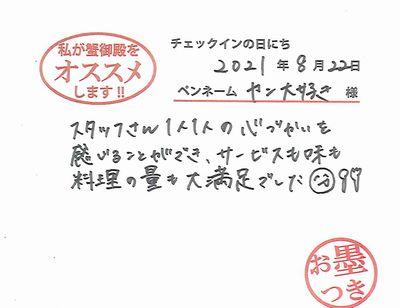 私が蟹御殿を
オススメ
します!!
チェックインの日にち
2021年8月22日
ペンネーム ヤン大好き 様
スタッフさん1人1人の心づかいを
感じることができ、サービスも味も
料理の量も大満足でした
お墨
つき